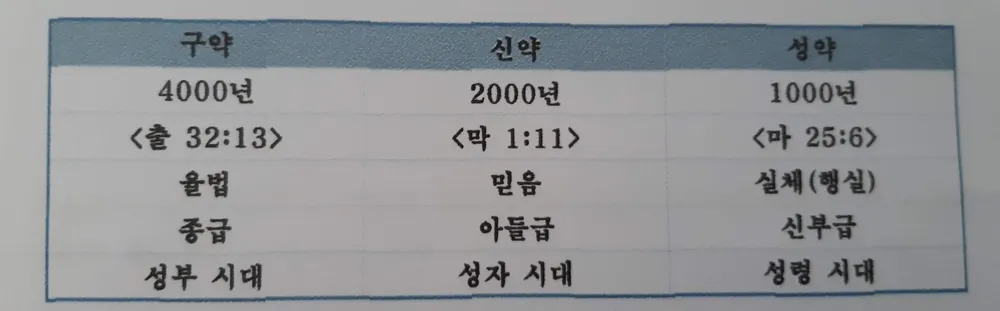 구약 신약 성약
4000년 2000년 1000년
<출 32:13> <막 1:11> <마 25:6>
율법 믿음 실체(행실)
종급 아들급 신부급
성부 시대 성자 시대 성령 시대